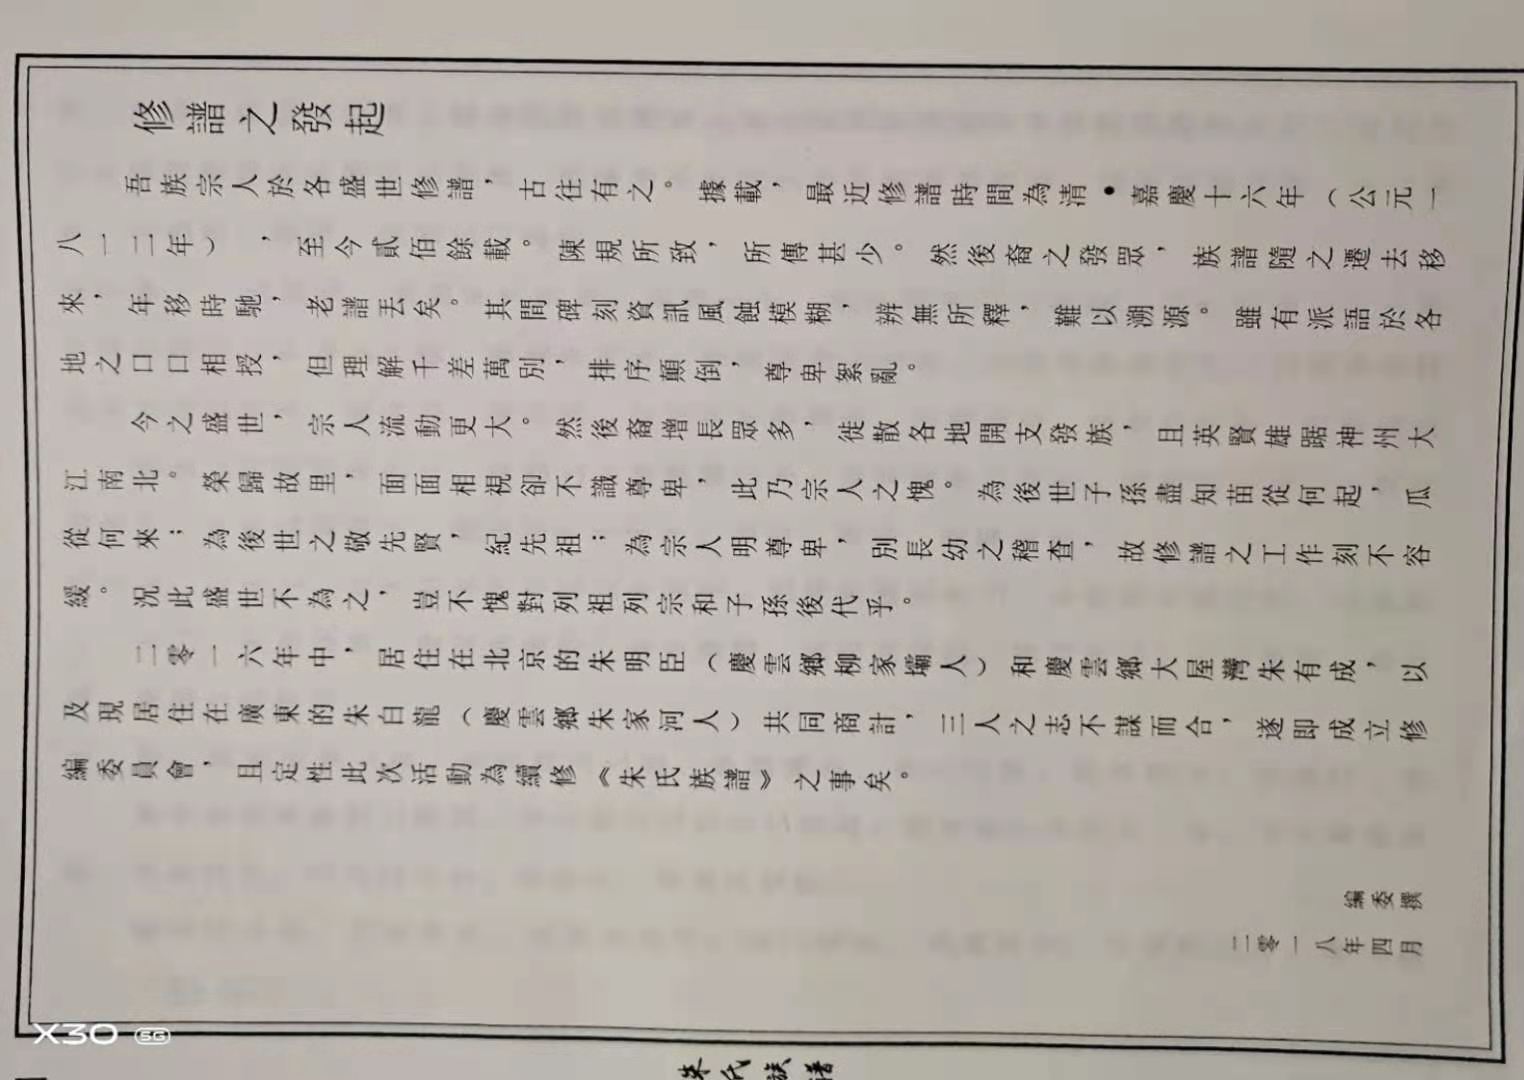 修譜之發起
吾族宗人於各盛世修譜，古往有之。據載，最近修譜時間為清•嘉慶十六年（公元一
八一二年），至今貳佰餘載。陳規所致，所傳甚少。然後裔之發眾，族譜隨之遷去移
來，年移時馳，老譜丟矣。其間碑刻資訊風蝕模糊，辨無所釋，難以溯源。雖有派語於各
地之口口相授，但理解千差萬別，排序顛倒，尊卑絮亂。
今之盛世，宗人流動更大。然後裔增長眾多，徙散各地開支發族，且英賢雄踞神州大
江南北。榮歸故里，面面相視卻不識尊卑，此乃宗人之愧。為後世子孫盡知苗從何起，瓜
從何來；為後世之敬先賢，紀先祖；為宗人明尊卑，別長幼之稽查，故修譜之工作刻不容
緩。況此盛世不為之，豈不愧對列祖列宗和子孫後代乎。
二零一六年中，居住在北京的朱明臣（慶雲鄉柳家壩人）和慶雲鄉大屋灣朱有成，以
及現居住在廣東的朱白龍（慶雲鄉朱家河人）共同商計，三人之志不謀而合，遂即成立修
編委員會，且定性此次活動為續修《朱氏族譜》之事矣。
編委撰
二零一八年四月
朱氏族譜
X30 5G